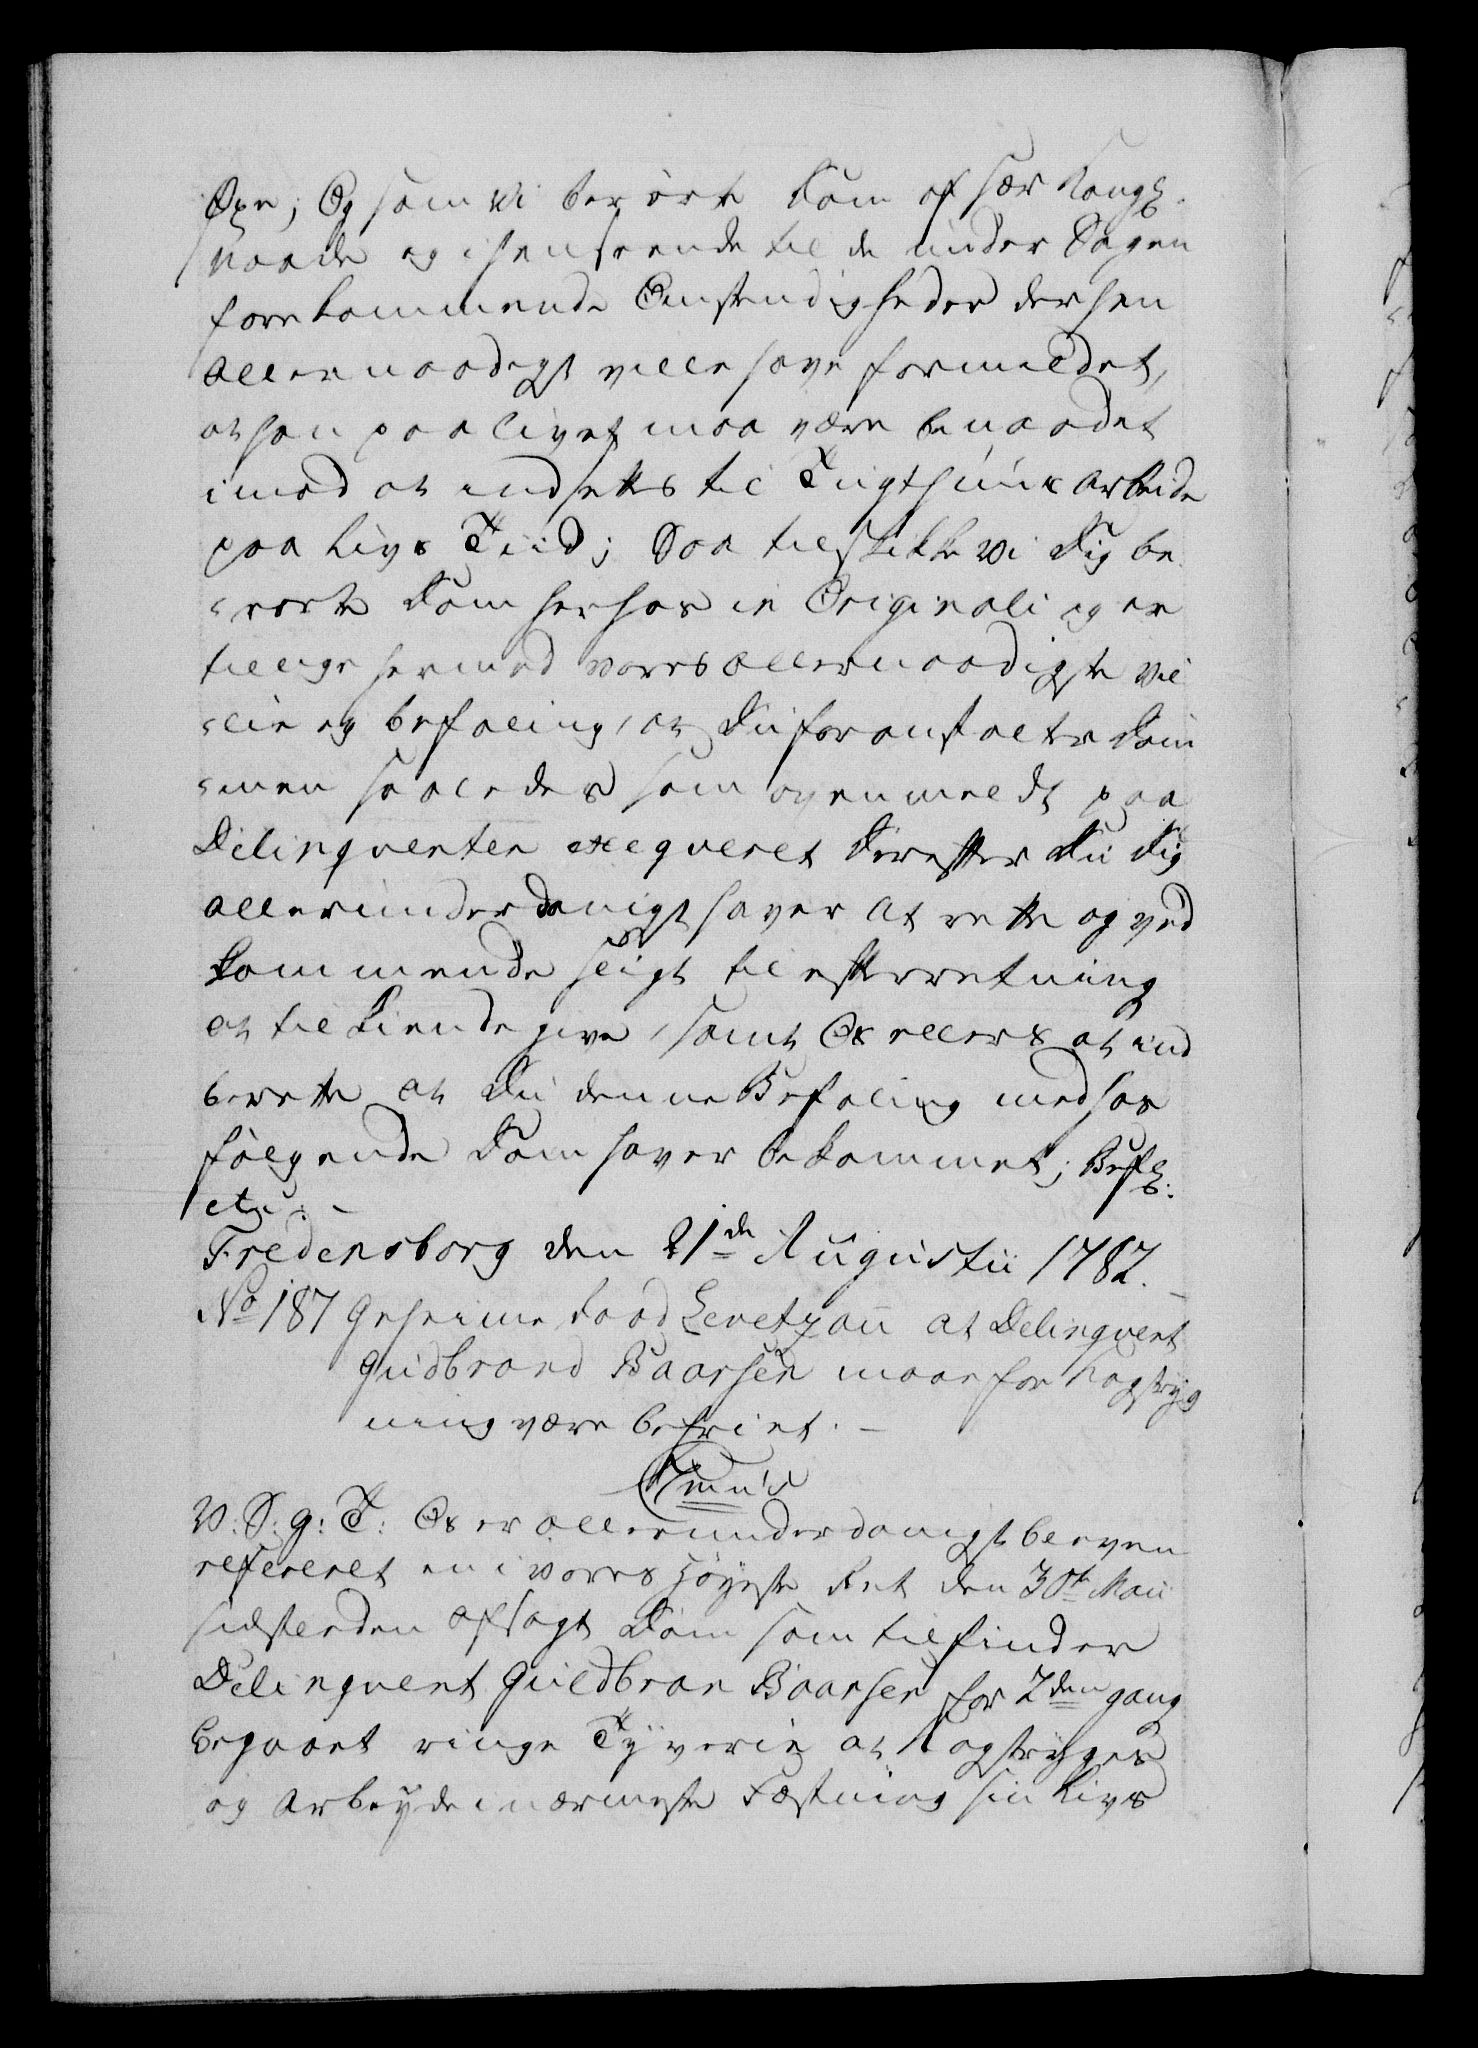 Øxe; Og som vi berørte Dom af sær Kongl.
Naade og i henseende til de under Sagen
forekommende Omstendigheder derhen
allernaadigst ville have formildet,
at han paa livet maa være benaadet
imod at indsettes til Tugthuus Arbeide
paa Livs Tiid; Saa tilskikke vi Dig be-
-rørte Dom herhos in Originali og er
tillige hermed vores allernaadigste Vil
-lie og befaling, at Du foranstalter Dom
-men saaledes som ovenmeldt paa
Delinqventen exeqveret Derefter Du Dig
allerunderdanigst haver at rette og ved
kommende sligt til efterretning
at tilkiendegive, samt Os ellers at ind
berette at Du denne Befaling med hos
følgende Dom haver bekommet; Befl:
etc: -
Fredensborg den 21de Augustii 1782.
No 187 Geheimeraad Levetzau at Delinqvent
Gudbrand Baarsen maae for Kagstryg
ning være befriet. -
C 7mus
V: S: g: T: Os er allerunderdanigst bleven
refereret en i vores Høyeste Ret den 30te Maii
sidstleden afsagt Dom som tilfinder
Delinqvent Guldbran Baarsen for 2den gang
begaaet ringe Tyverie at Kagstryges
og Arbeyde i nærmeste Fæstning sin Livs